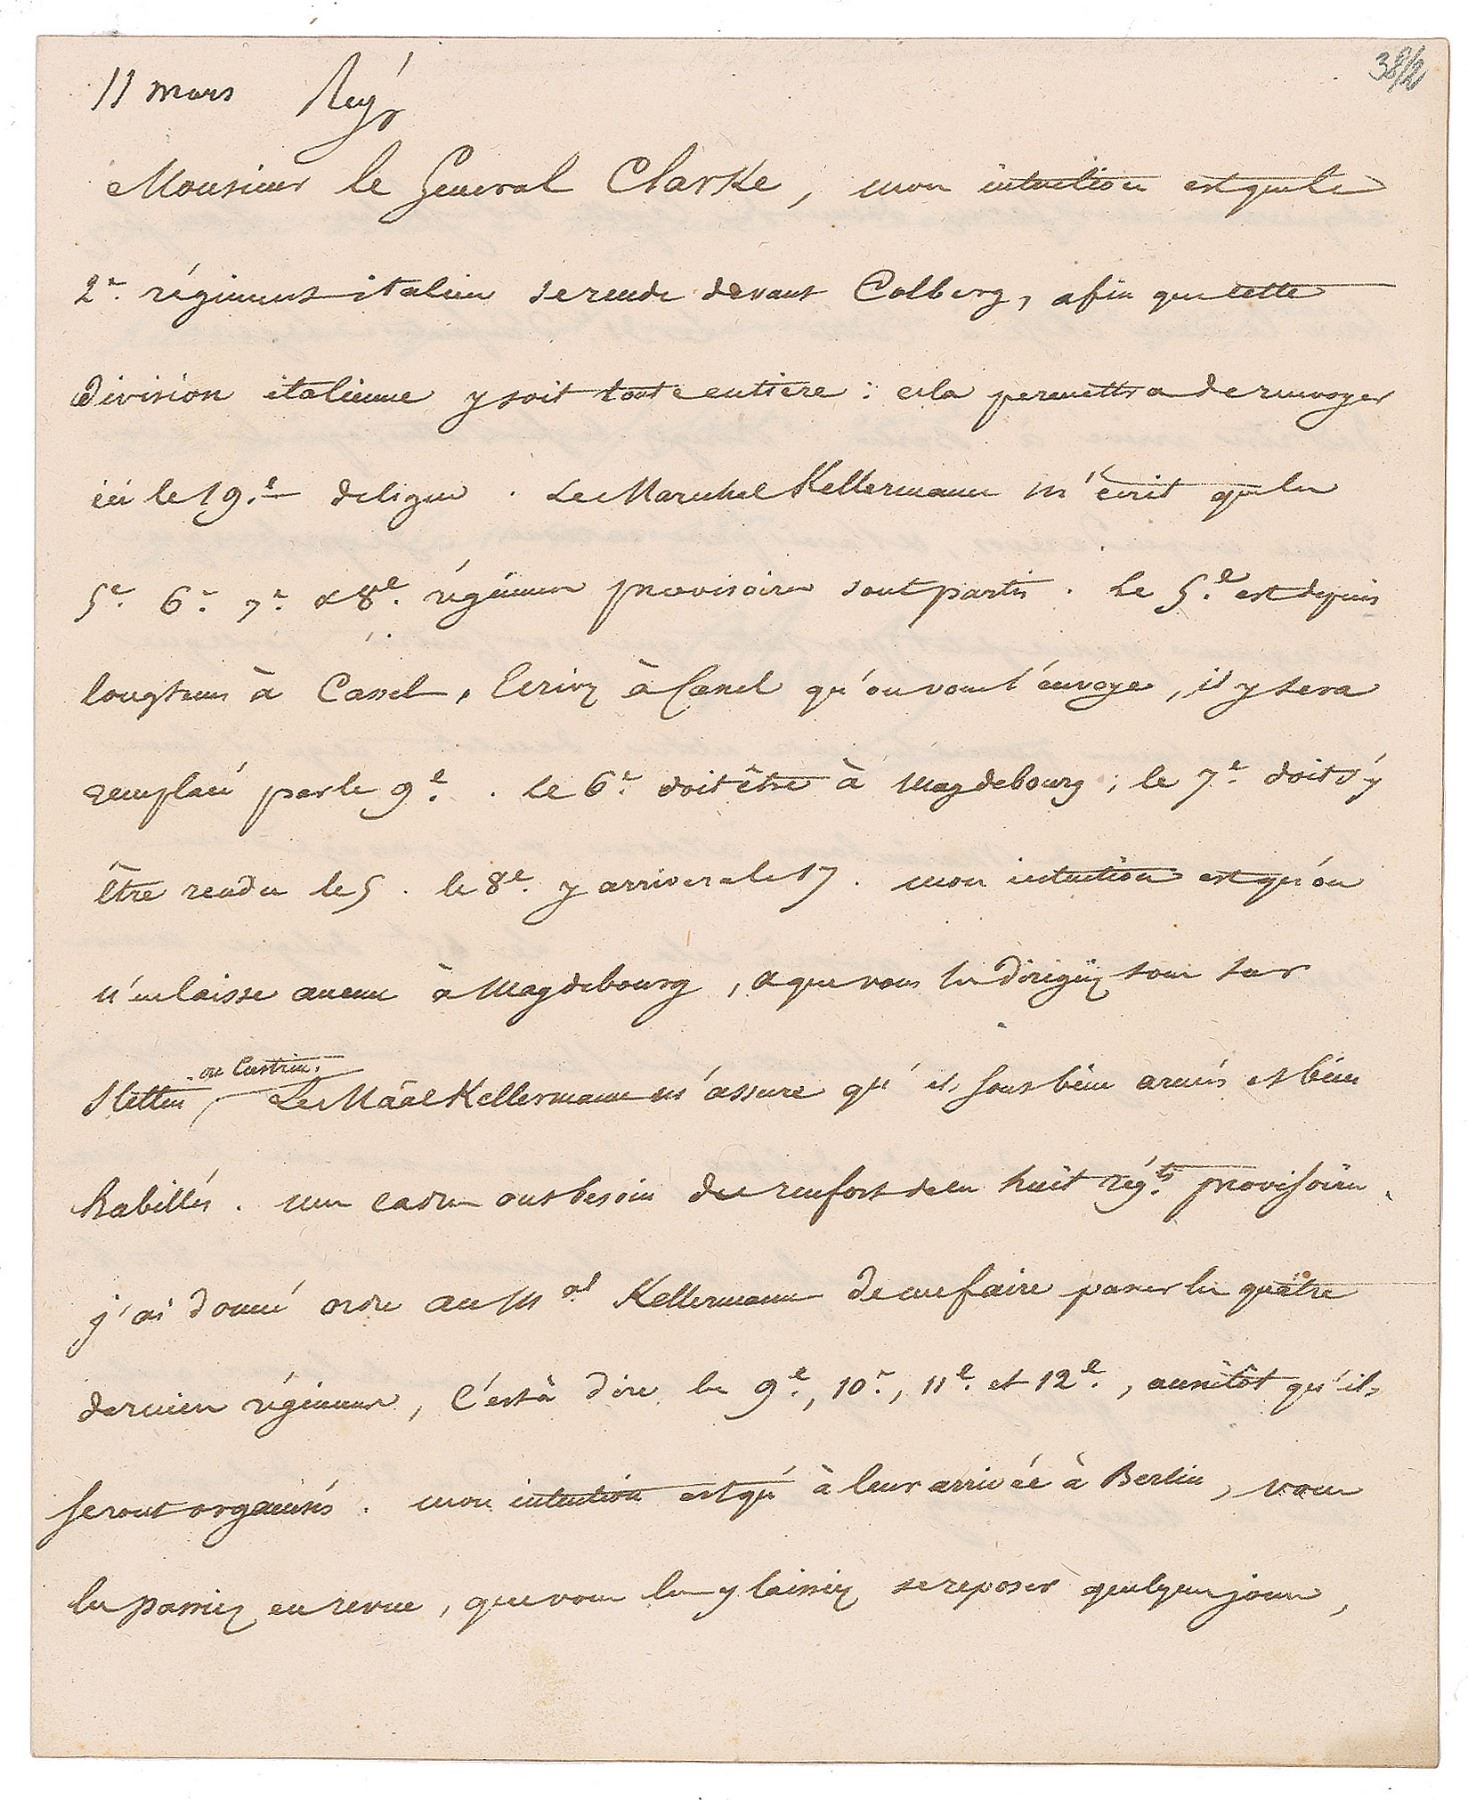 38/2
11 mars Rey
Monsieur le General Clarke, mon intention est que le
2e. régiment italien se rende devant Colberg, afin que cette
division italienne y soit toute entiere : cela permettra de renvoyer
ici le 19.e de ligne . Le Marechal Kellermann m'écrit que les
5e. 6e. 7e. & 8e. régimens provisoires sont partis . Le 5.e est depuis
longtems à Cassel, Ecrivez à Cassel qu'on vous l'envoye, il y sera
remplacé par le 9e. . le 6e. doit être à Magdebourg ; le 7e. doit s'y
être rendu le 5 . le 8e. y arrivera le 17 . mon intention est qu'on
n'en laisse aucun à Magdebourg, & que vous les dirigiez tous sur
ou Custrin.
Stettin, Le Maal Kellermann m'assure qu'ils sont bien armés et bien
habillés . mes cadres ont besoin du renfort de ces huit régts. provisoires.
j'ai donné ordre au Mal Kellermann de me faire passer les quatre
derniers régimens, c'est à dire les 9e., 10e., 11e. et 12e., aussitôt qu'ils
seront organisés . mon intention est qu'à leur arrivée à Berlin, vous
les passiez en revue, que vous les y laissiez se reposer quelques jours,